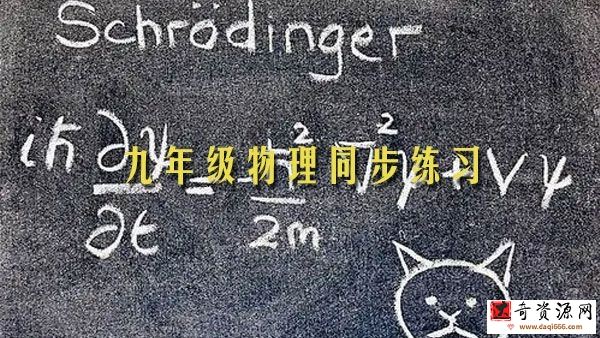 Schrödinger
iħ ∂ψ/∂t = -ħ²/2m ∇²ψ + Vψ
九年级物理同步练习
奇资源网
www.daqi666.com